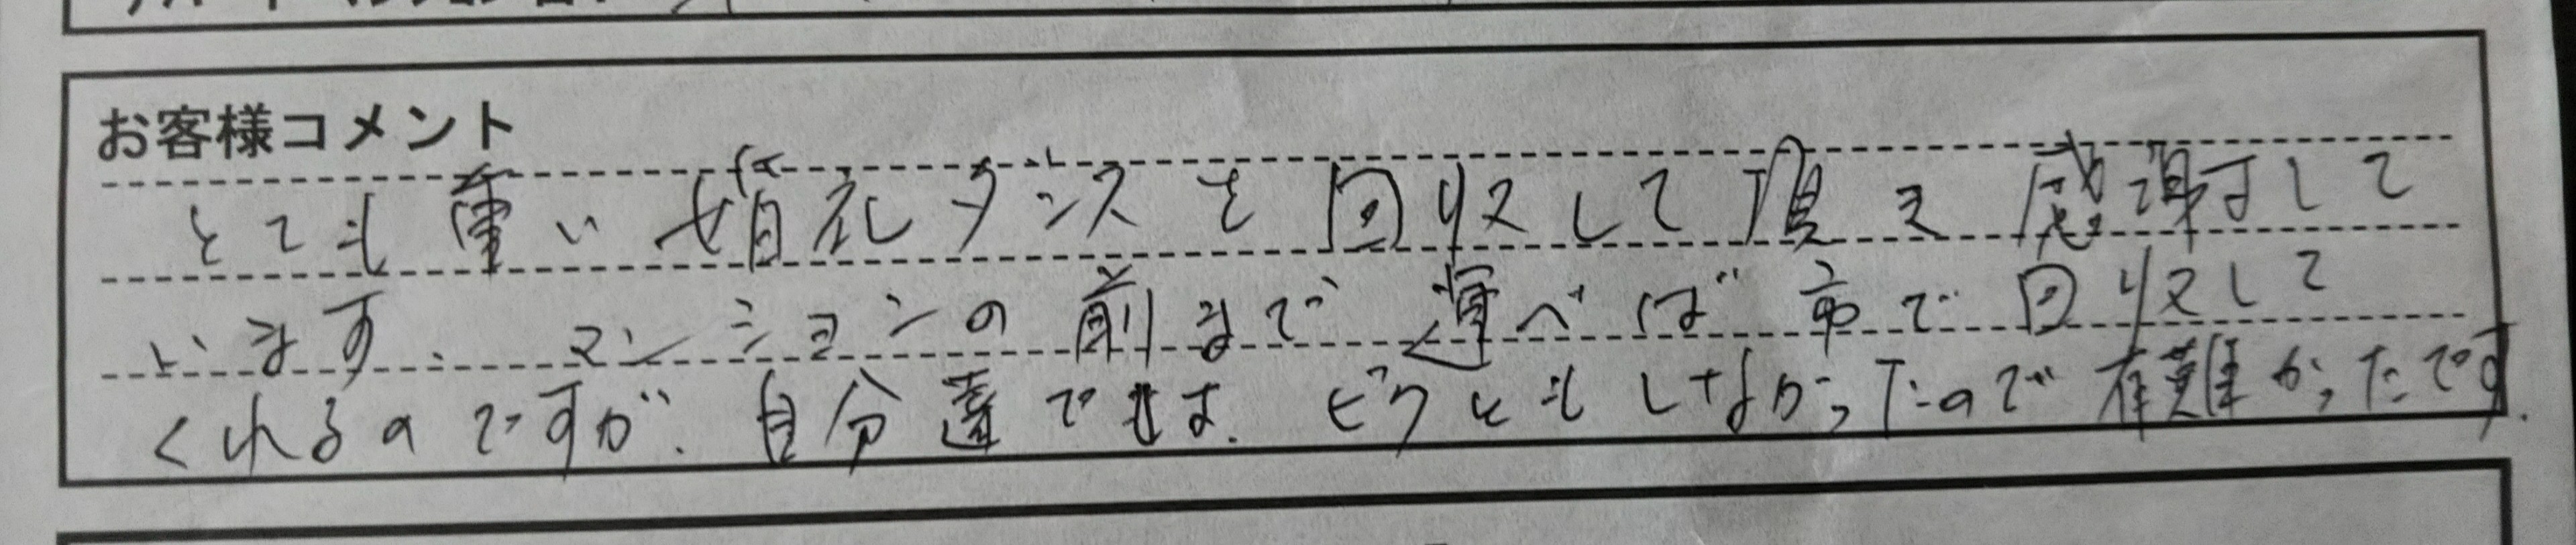 お客様コメント
とても重い婚礼ダンスを回収して頂き感謝まして
います。マンションの前まで運べば市で回収して
くれるのですが、自分達では、どうともしなかったので有難かったです。